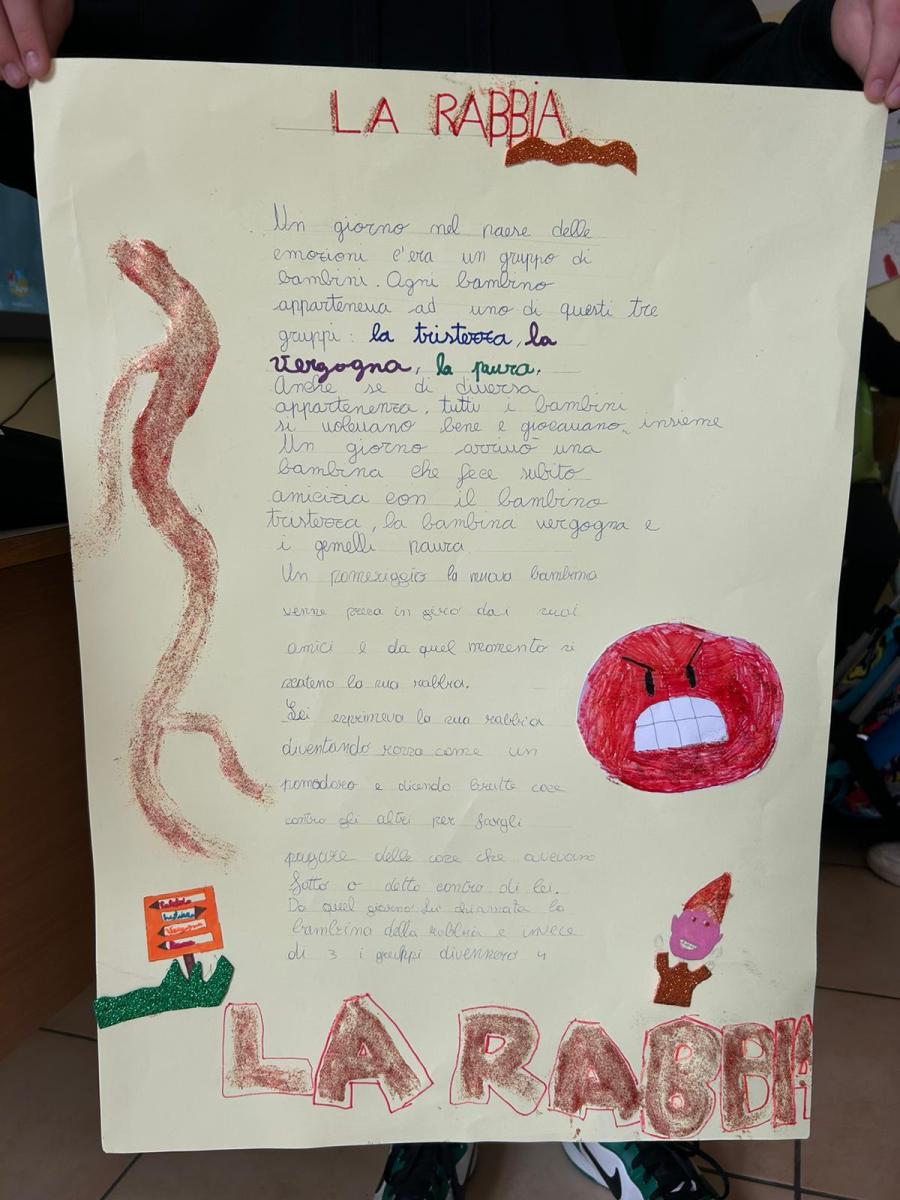 LA RABBIA
Un giorno nel paese delle
emozioni c'era un gruppo di
bambini. Ogni bambino
apparteneva ad uno di questi tre
gruppi: la tristezza, la
vergogna, la paura.
Anche se di diversa
appartenenza, tutti i bambini
si volevano bene e giocavano insieme
Un giorno arrivò una
bambina che fece subito
amicizia con il bambino
tristezza, la bambina vergogna e
i gemelli paura.
Un pomeriggio la nuova bambina
venne presa in giro dai suoi
amici e da quel momento si
scateno la sua rabbia.
Lei esprimeva la sua rabbia
diventando rossa come un
pomodoro e dicendo brutte cose
contro gli altri per fargli
pagare delle cose che avevano
fatto o detto contro di lei.
Da quel giorno fu chiamata la
bambina della rabbia e invece
di 3 i gruppi divennero 4
LA RABBIA